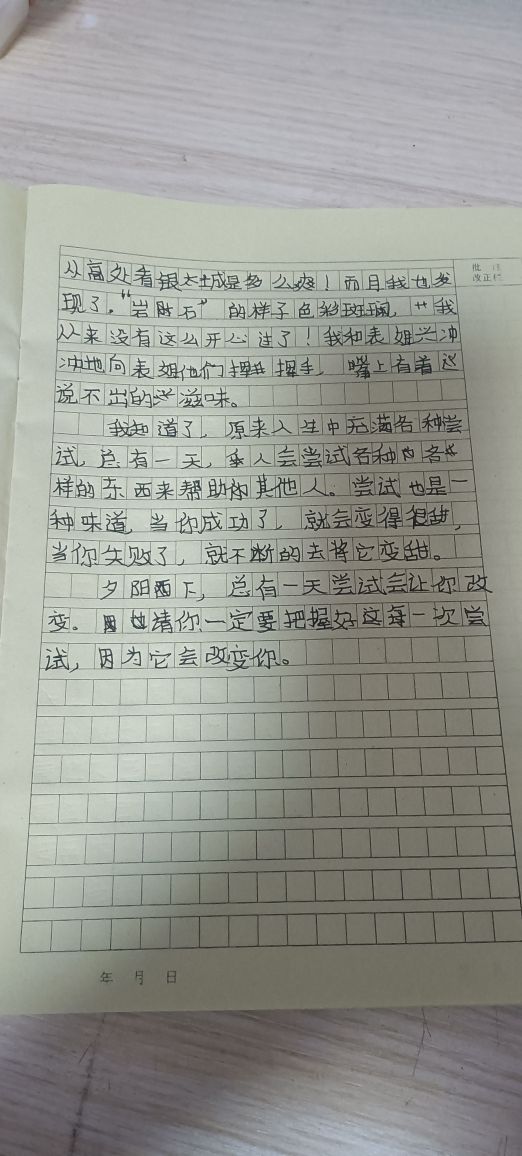 批 注
改正栏
从高处看银太城是多么爽！而且我也发
现了，“岩石”的样子色彩斑斓，我
从来没有这么开心过了！我和表姐兴冲
冲地向表姐他们挥挥手，嘴上有着这
说不出的滋味。
我知道了，原来人生中充满各种尝
试，总有一天，人会尝试各种各
样的东西来帮助你其他人。尝试也是一
种味道，当你成功了，就会变得很甜，
当你失败了，就不断的去将它变甜。
夕阳西下，总有一天尝试会让你改
变。也请你一定要把握好这每一次尝
试，因为它会改变你。
年 月 日